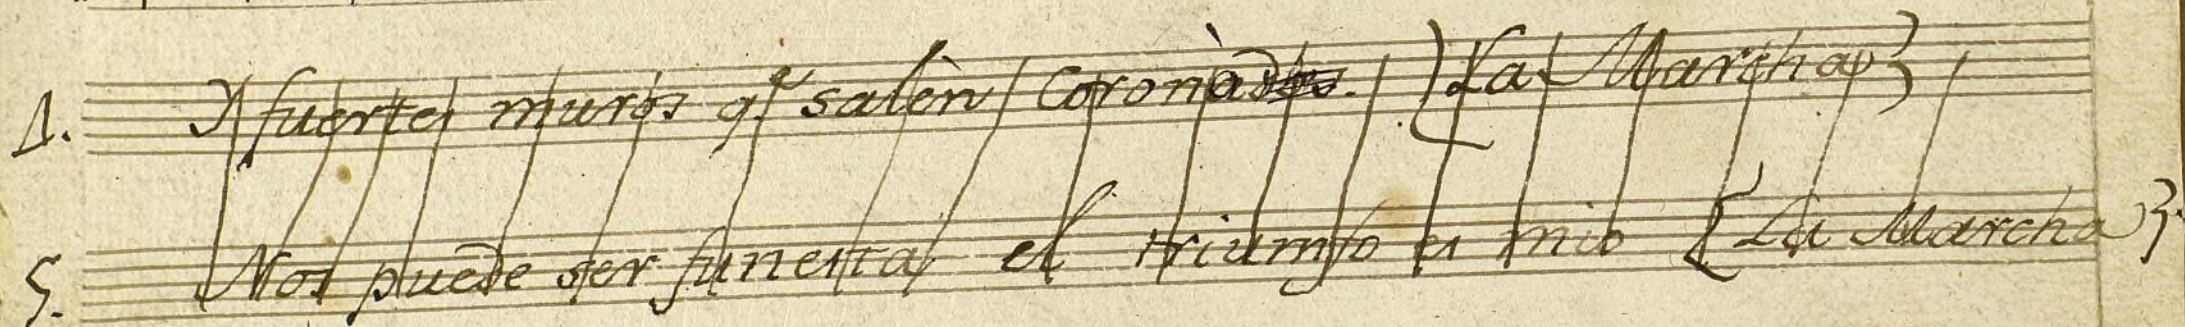 1. Y fuertes muros q.e salèn Coronàdos. {La Marcha}
5. Nos puede ser funesta el triumfo es mio {La Marcha}